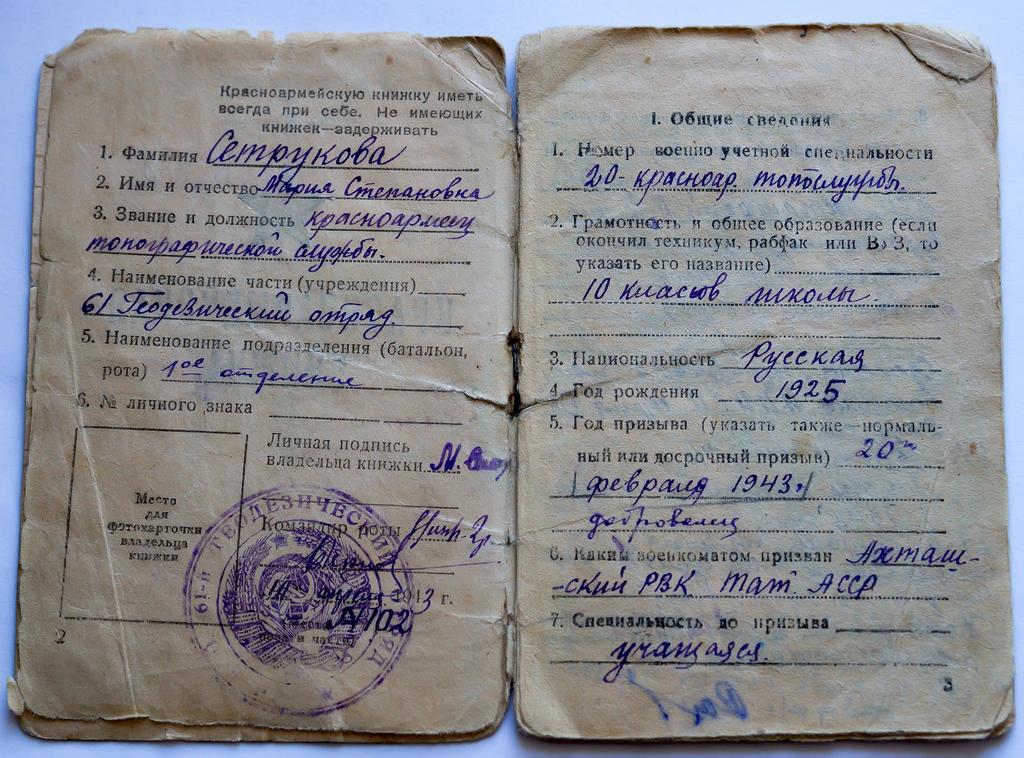 Красноармейскую книжку иметь
всегда при себе. Не имеющих
книжек—задерживать
1. Фамилия Сетрукова
2. Имя и отчество Мария Степановна
3. Звание и должность красноармеец
топографической службы.
4. Наименование части (учреждения)
61 Геодезический отряд.
5. Наименование подразделения (батальон,
рота) 1ое отделение
6. № личного знака
Личная подпись
владельца книжки М.
Место
для
фотокарточки
владельца
книжки
Командир роты
61-й ГЕОДЕЗИЧЕСКИЙ ОТРЯД
43 г.
№102
2
I. Общие сведения
1. Номер военно учетной специальности
20-красноар. топослужбы.
2. Грамотность и общее образование (если
окончил техникум, рабфак или ВУЗ, то
указать его название)
10 класов школы.
3. Национальность Русская
4. Год рождения 1925
5. Год призыва (указать также нормаль-
ный или досрочный призыв) 20
февраля 1943г
доброволец
6. Каким военкоматом призван Ахташ-
-ский РВК Тат. АССР
7. Специальность до призыва
учащаяся.
3